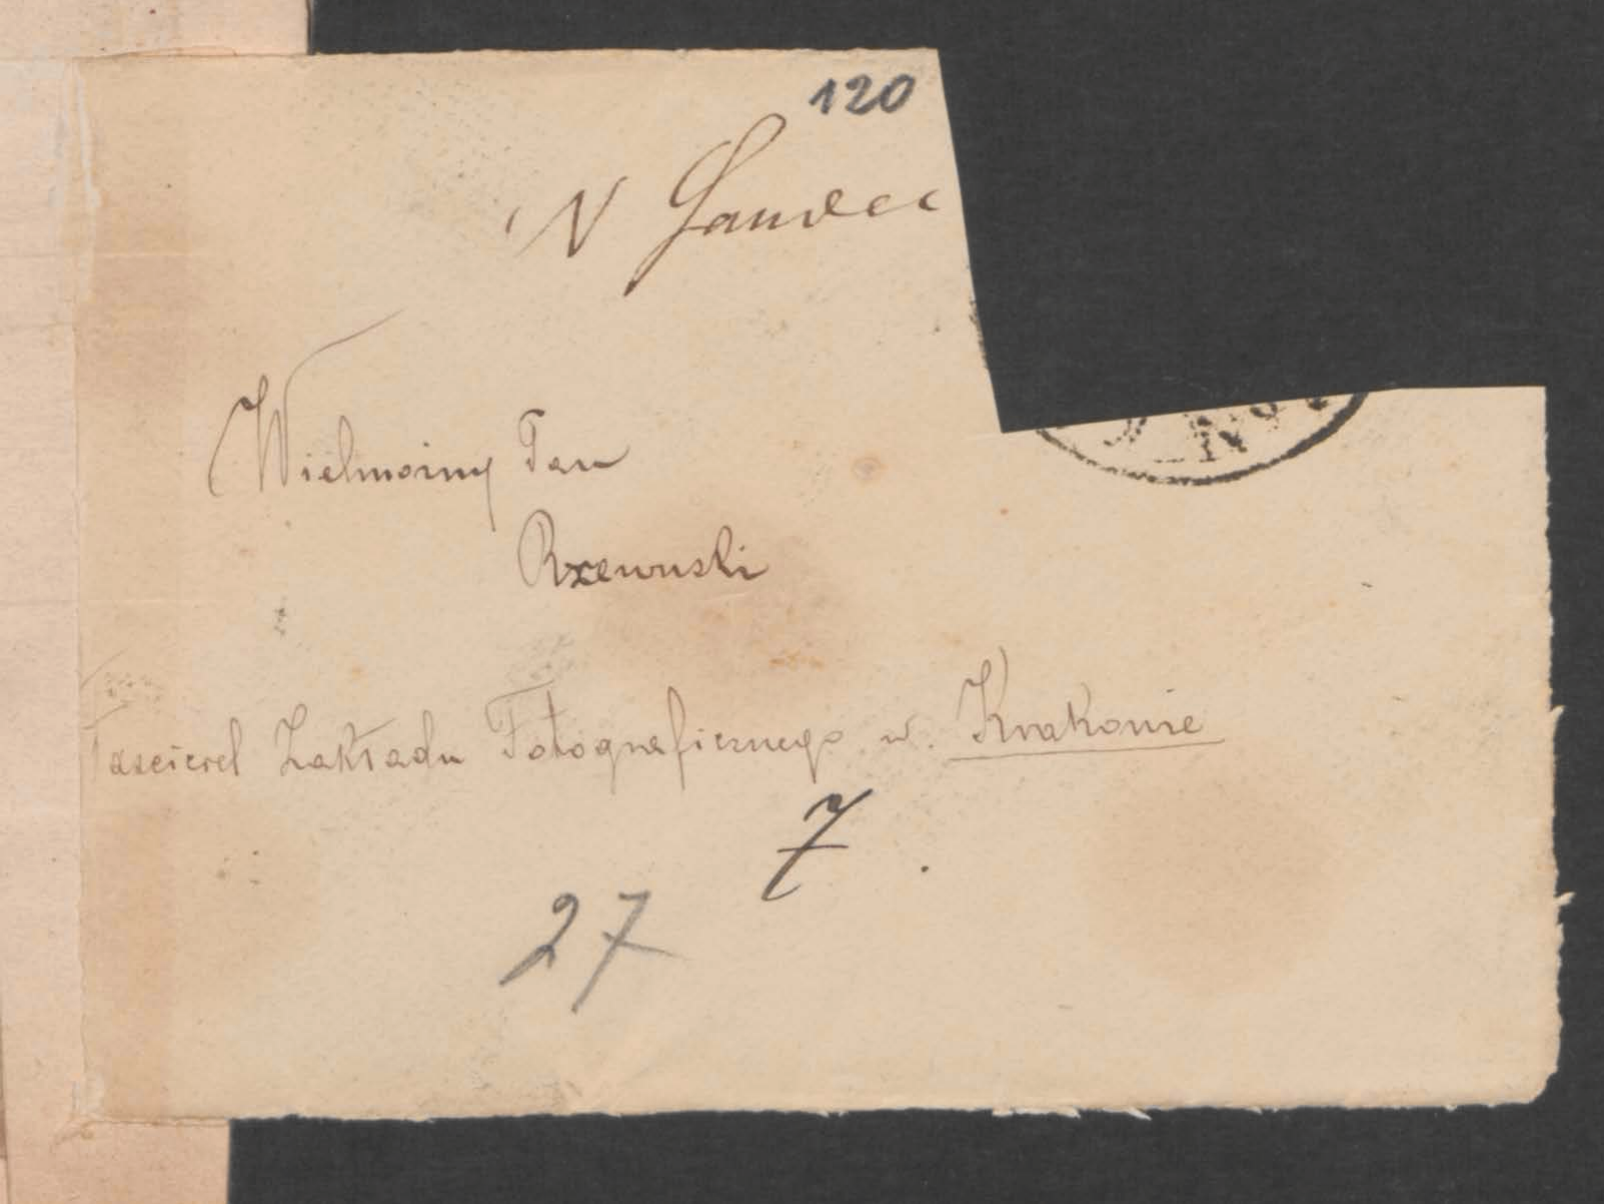 120
N Sandec
Wielmożny Pan
Rzewuski
Właściciel Zakładu Fotograficznego w. Krakowie
7
27